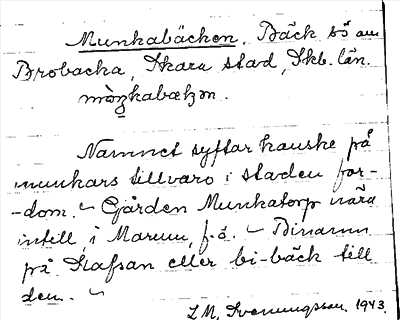 Munkabäcken. Bäck sö om
Brobacka, Skara stad, Skb. län.
Namnet syftar kanske på
munkars tillvaro i staden for-
-dom. ~ Gården Munkatorp nära
intill, i Marum, f.ö. ~ Binamn
på Flafsan eller bi-bäck till
den. ~
Svenungsson. 1943.